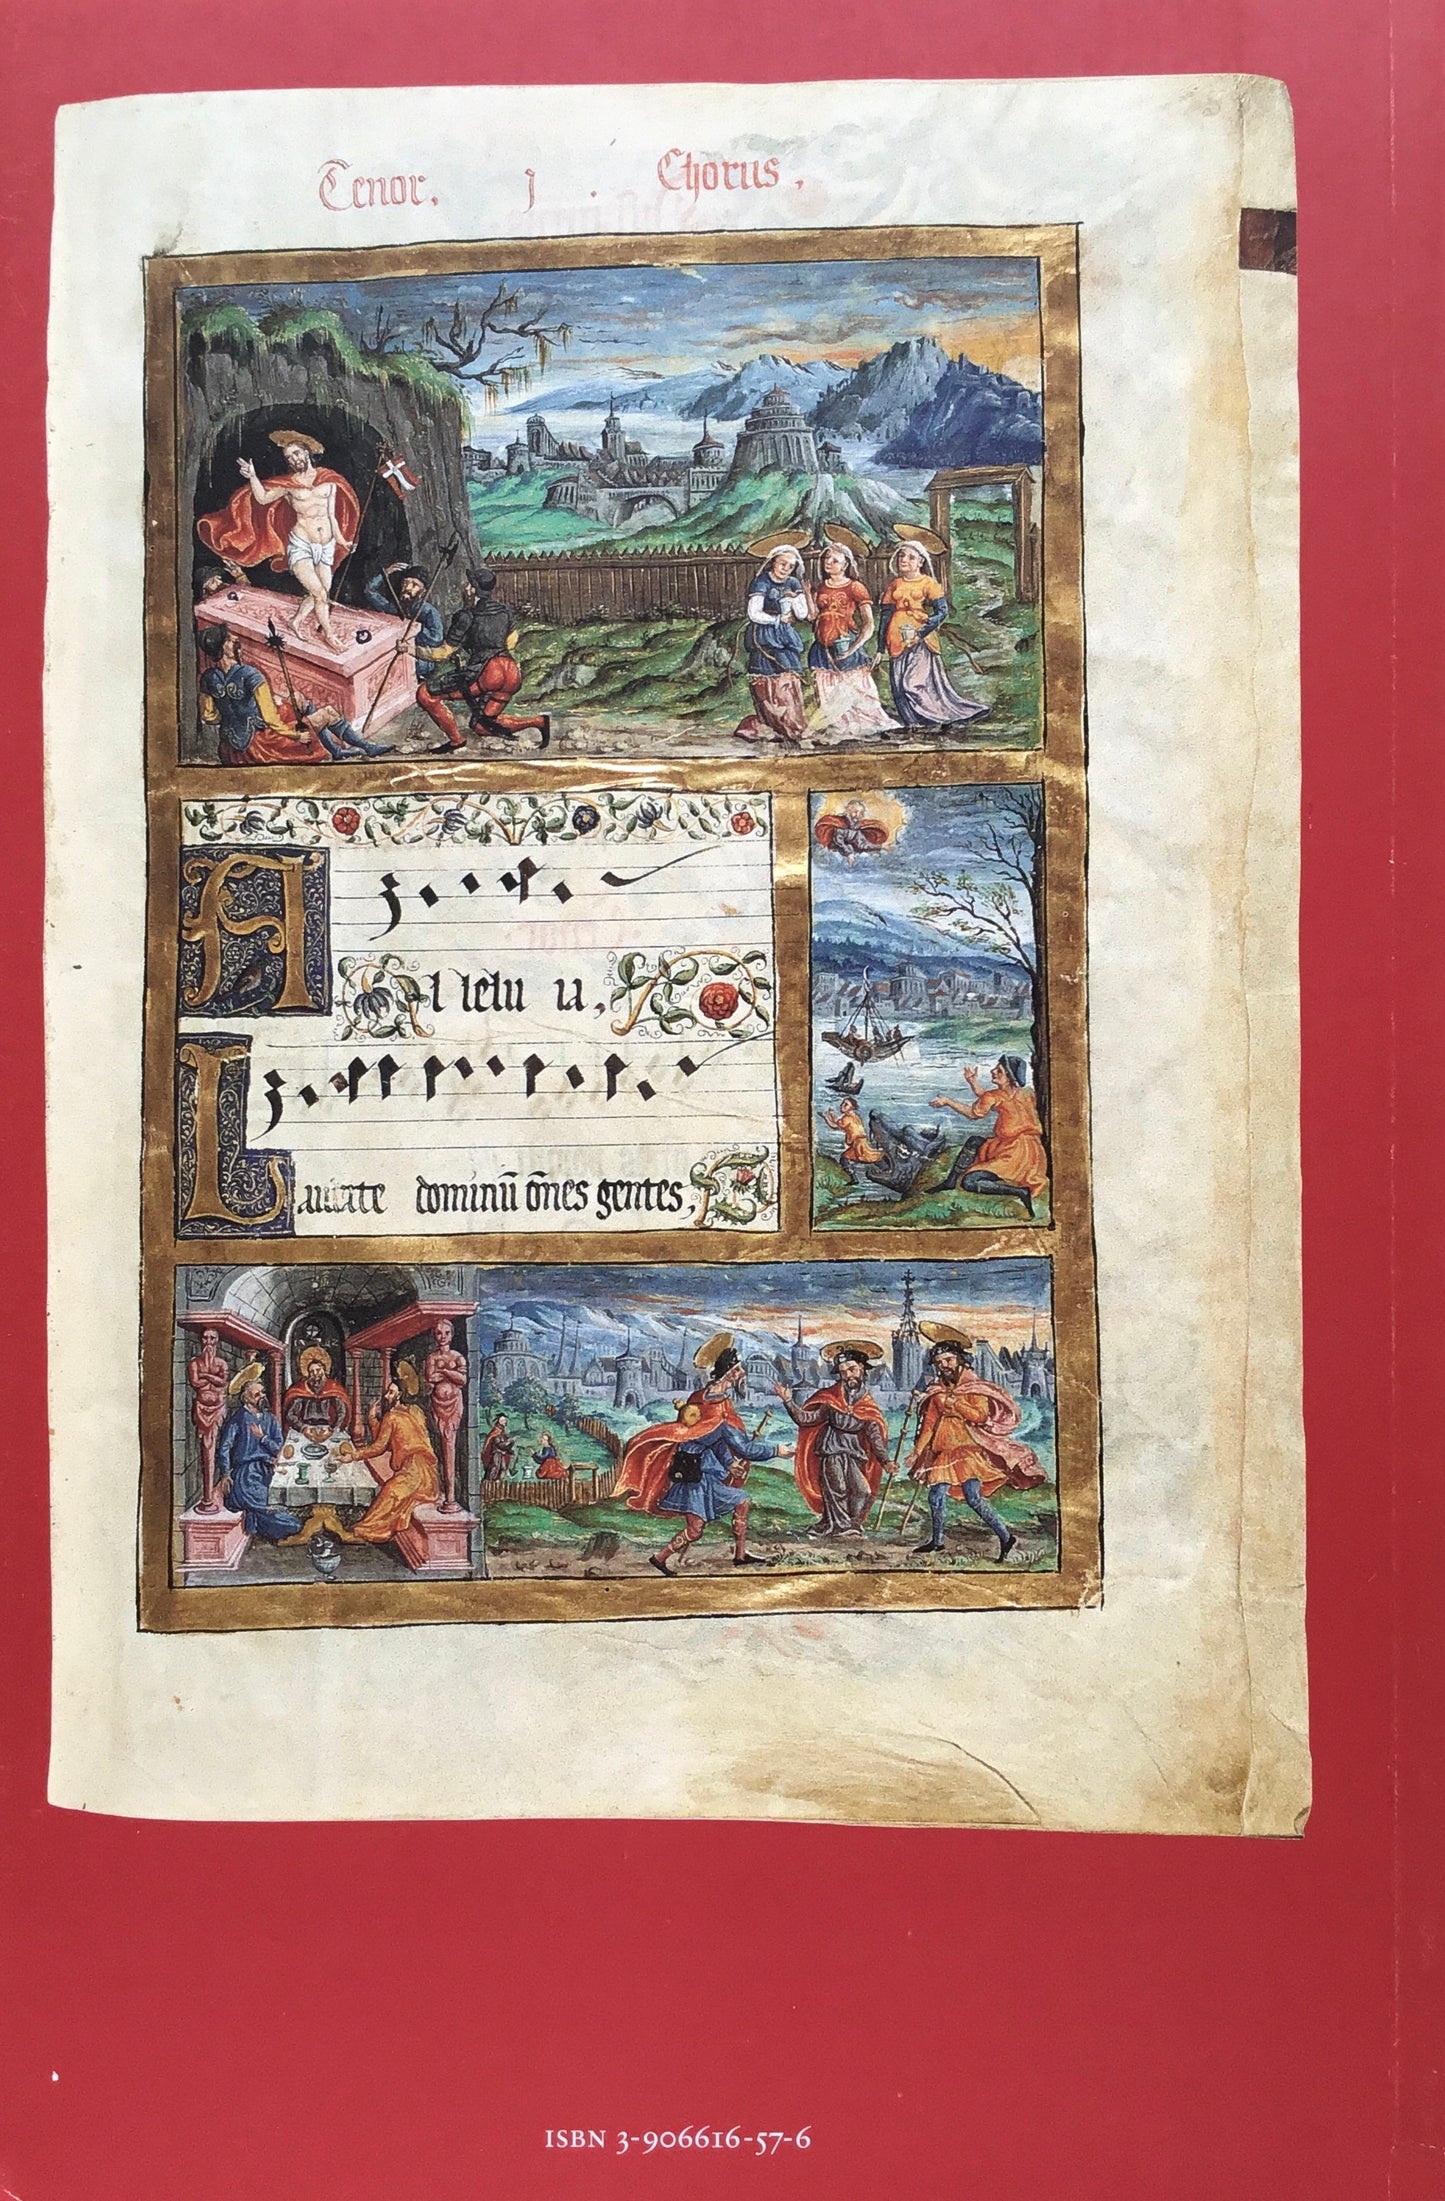 Tenor. j . Chorus.
Al lelu ia,
Laudate dominū ōnes gentes,
ISBN 3-906616-57-6